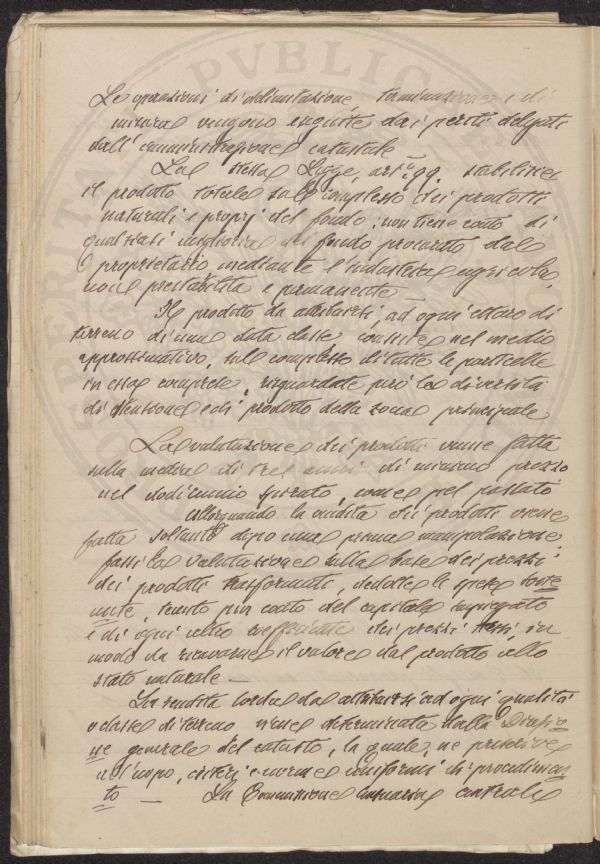 Le operazioni di delimitazione, terminazione e di
misura vengono eseguite dai periti delegati
dall'amministrazione catastale
La stessa Legge, art.º 99. stabilisce
il prodotto totale sul complesso dei prodotti
naturali e propri del fondo; non tiene conto di
qualsiasi miglioria del fondo procurato dal
proprietario mediante l'industria agricola,
non prestabilita e permanente —
Il prodotto da attribuirsi, ad ogni ettaro di
terreno di una data classe consiste nel medio
approssimativo, sul complesso di tutte le particelle
in essa comprese, risguardate però le diversità
di stensione e di prodotto della zona principale
La valutazione dei prodotti viene fatta
sulla media di tre anni di minimo prezzo
nel dodicennio spirato, come pel passato
Allorquando la vendita dei prodotti viene
fatta soltanto dopo una prima manipolazione,
fassi la valutazione sulla base dei prezzi
dei prodotti trasformati, dedotte le spese
tenuto pur conto del capitale impiegato
e di ogni altro coefficiente dei prezzi stessi, in
modo da ricavarne il valore dal prodotto allo
stato naturale —
La rendita da attribuirsi ad ogni qualità
o classe di terreno viene determinata dalla Direzio
ne generale del catasto, la quale, ne prescrive
all'uopo, criteri e norme conformi di procedimen
to — La Commissione censuaria centrale